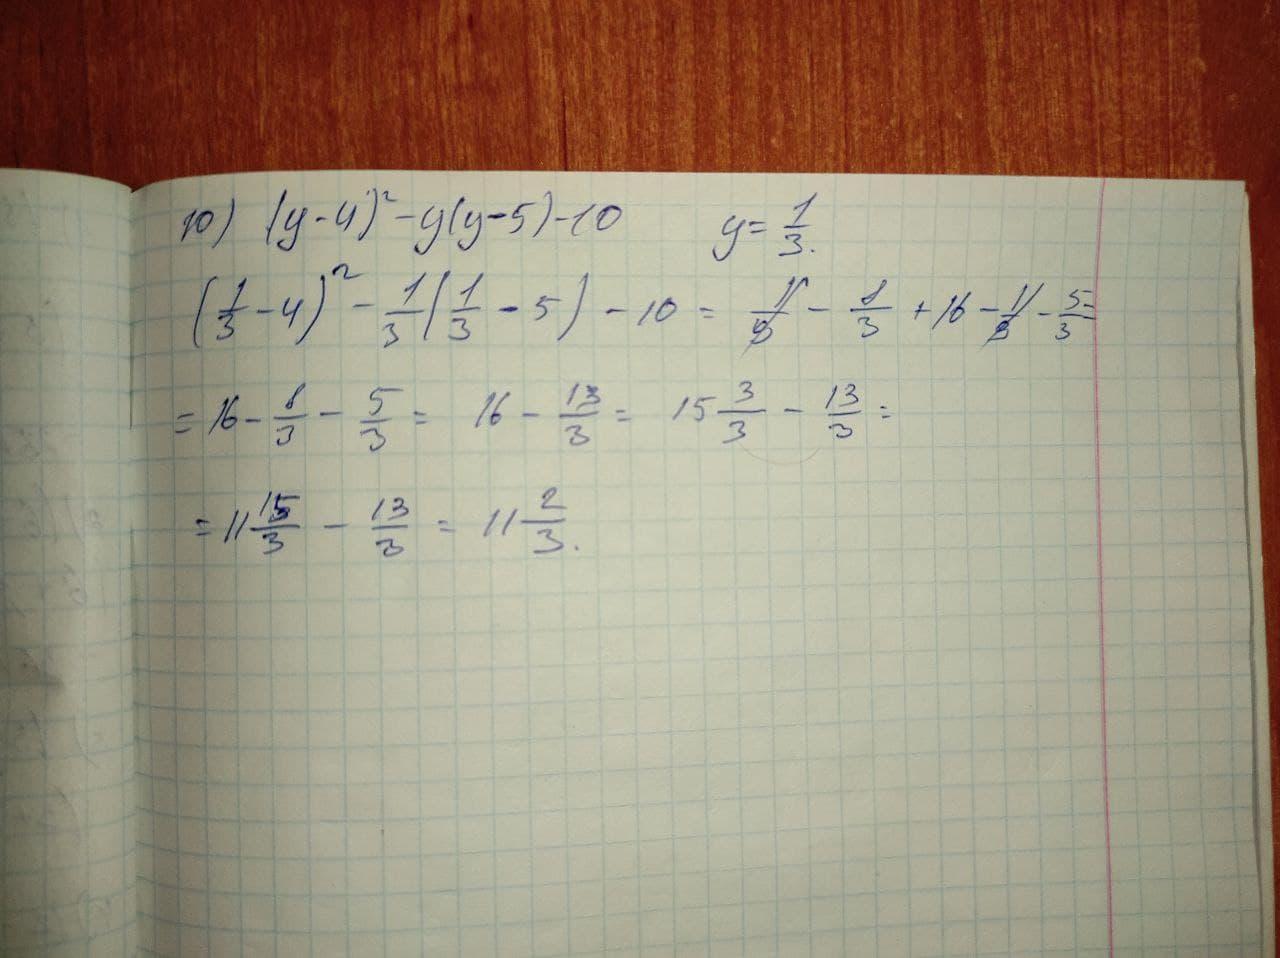 10) (y-4)² - y(y-5) - 10 y = 1/3.
(1/3 - 4)² - 1/3(1/3 - 5) - 10 = 1/9 - 8/3 + 16 - 1/9 - 5/3 =
= 16 - 8/3 - 5/3 = 16 - 13/3 = 15 3/3 - 13/3 =
= 11 15/3 - 13/3 = 11 2/3.